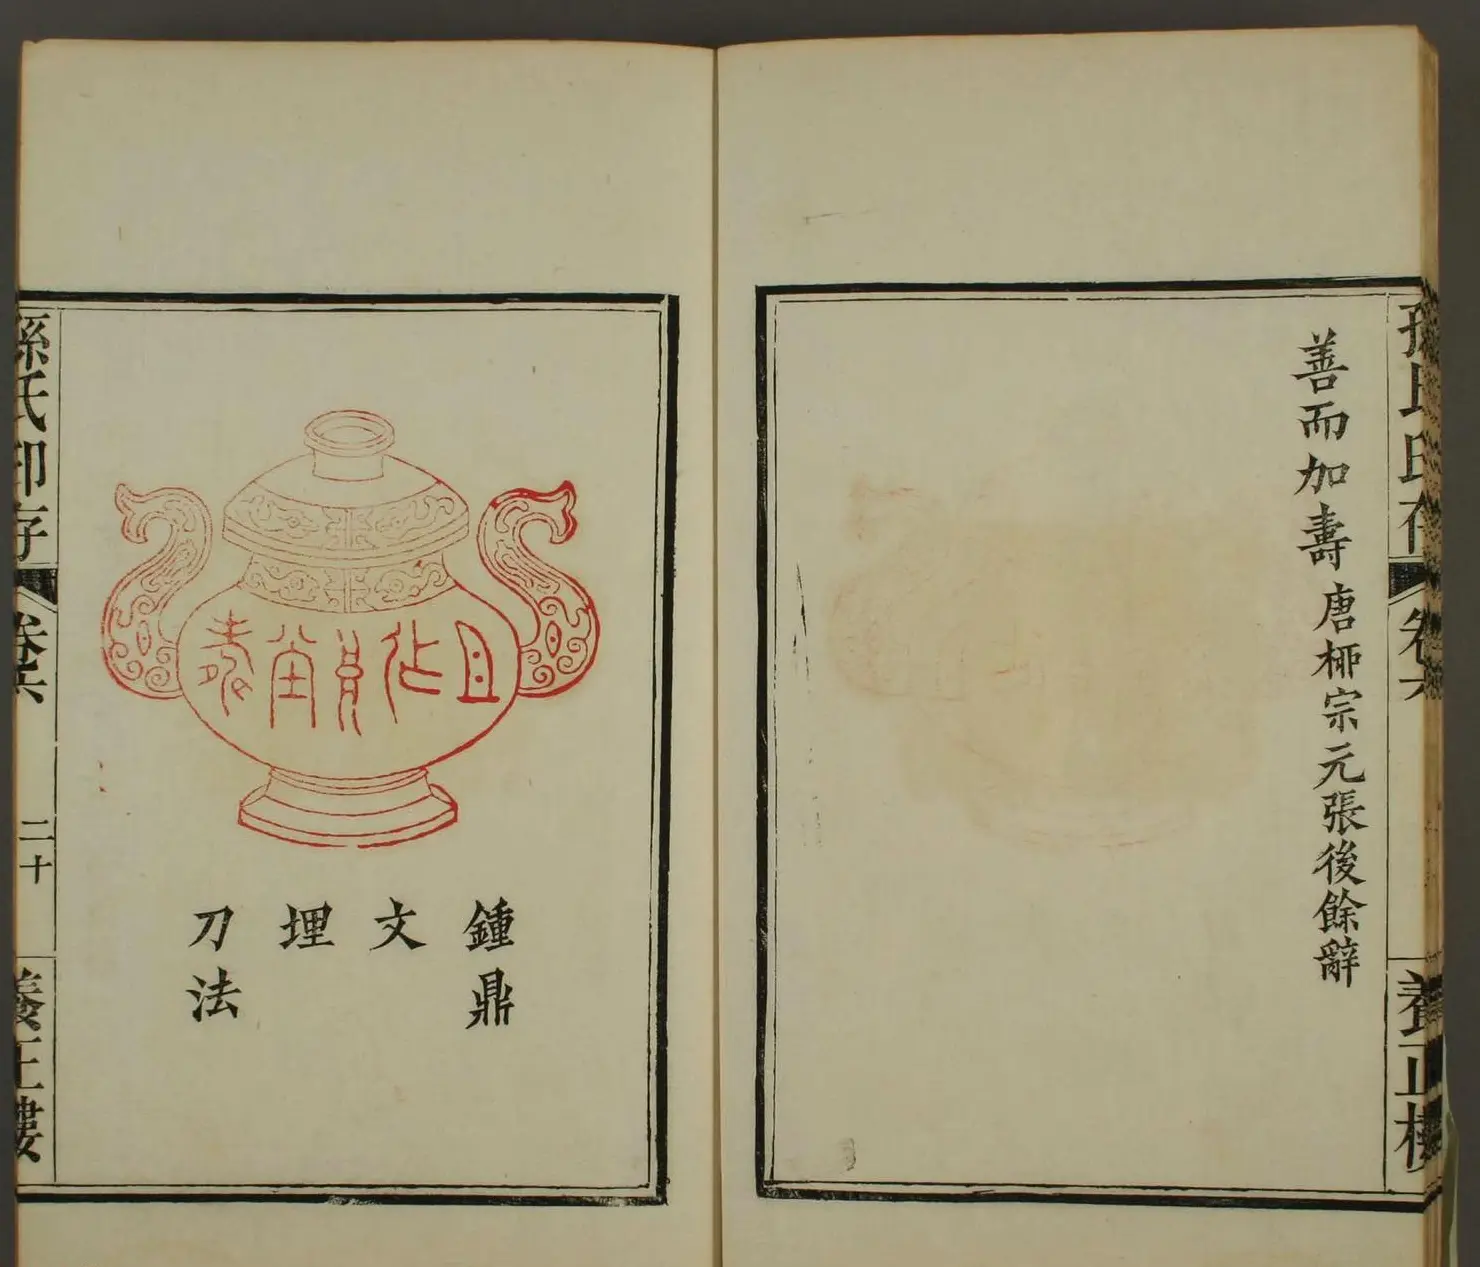 孫氏印存
卷六
養正樓
善而加壽唐柳宗元張後餘辭
鍾鼎
文
埋
刀法
孫氏印存
卷六
二十
養正樓